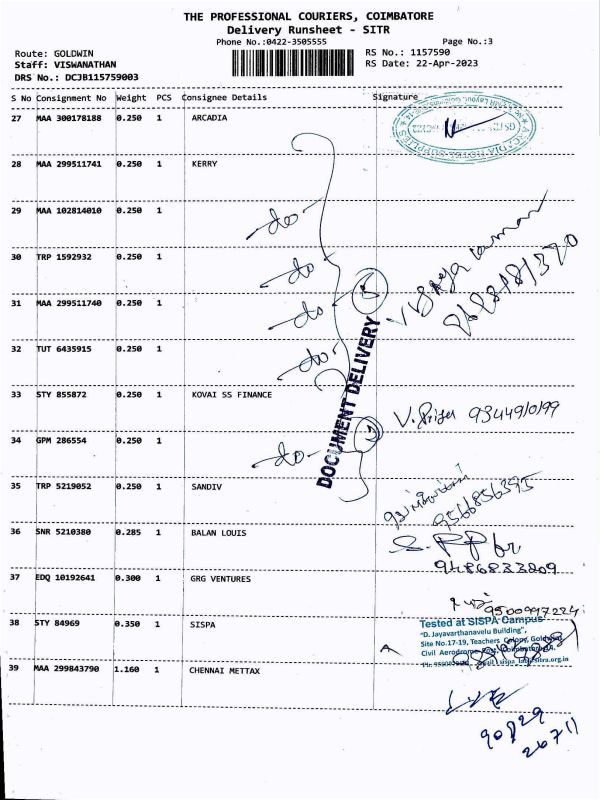 THE PROFESSIONAL COURIERS, COIMBATORE
Delivery Runsheet - SITR
Phone No.:0422-3505555 Page No.:3
Route: GOLDWIN RS No.: 1157590
Staff: VISWANATHAN RS Date: 22-Apr-2023
DRS No.: DCJB115759003
S No Consignment No Weight PCS Consignee Details Signature
27 MAA 300178188 0.250 1 ARCADIA
28 MAA 299511741 0.250 1 KERRY
29 MAA 102814010 0.250 1 -do-
30 TRP 1592932 0.250 1 -do-
31 MAA 299511740 0.250 1 -do-
Vijaya kumar
32 TUT 6435915 0.250 1 -do-
DOCUMENT DELIVERY
33 STY 855872 0.250 1 KOVAI SS FINANCE
34 GPM 286554 0.250 1 -do-
35 TRP 5219052 0.250 1 SANDIV
9566856395
36 SNR 5210380 0.285 1 BALAN LOUIS
9486833209
37 EDQ 10192641 0.300 1 GRG VENTURES
9500997224
38 STY 84969 0.350 1 SISPA
Tested at SISPA Campus
"D. Jayavarthanavelu Building",
Site No.17-19, Teachers Colony, Goldwins
Civil Aerodrome Post, Coimbatore
39 MAA 299843790 1.160 1 CHENNAI METTAX
90829
26711